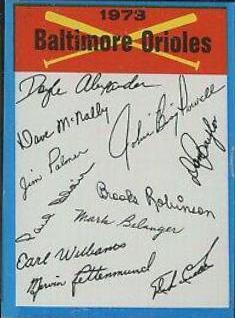 1973
Baltimore Orioles
Doyle Alexander
Dave McNally
John "Boog" Powell
Jim Palmer
Don Baylor
Paul Blair
Brooks Robinson
Mark Belanger
Earl Williams
Merv Rettenmund